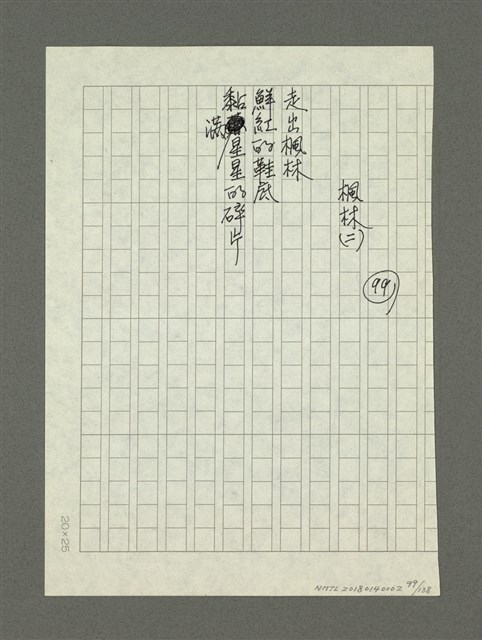 99
楓林(二)
走出楓林
鮮紅的鞋底
黏滿星星的碎片
20×25
NMTL 20180140002 99/138